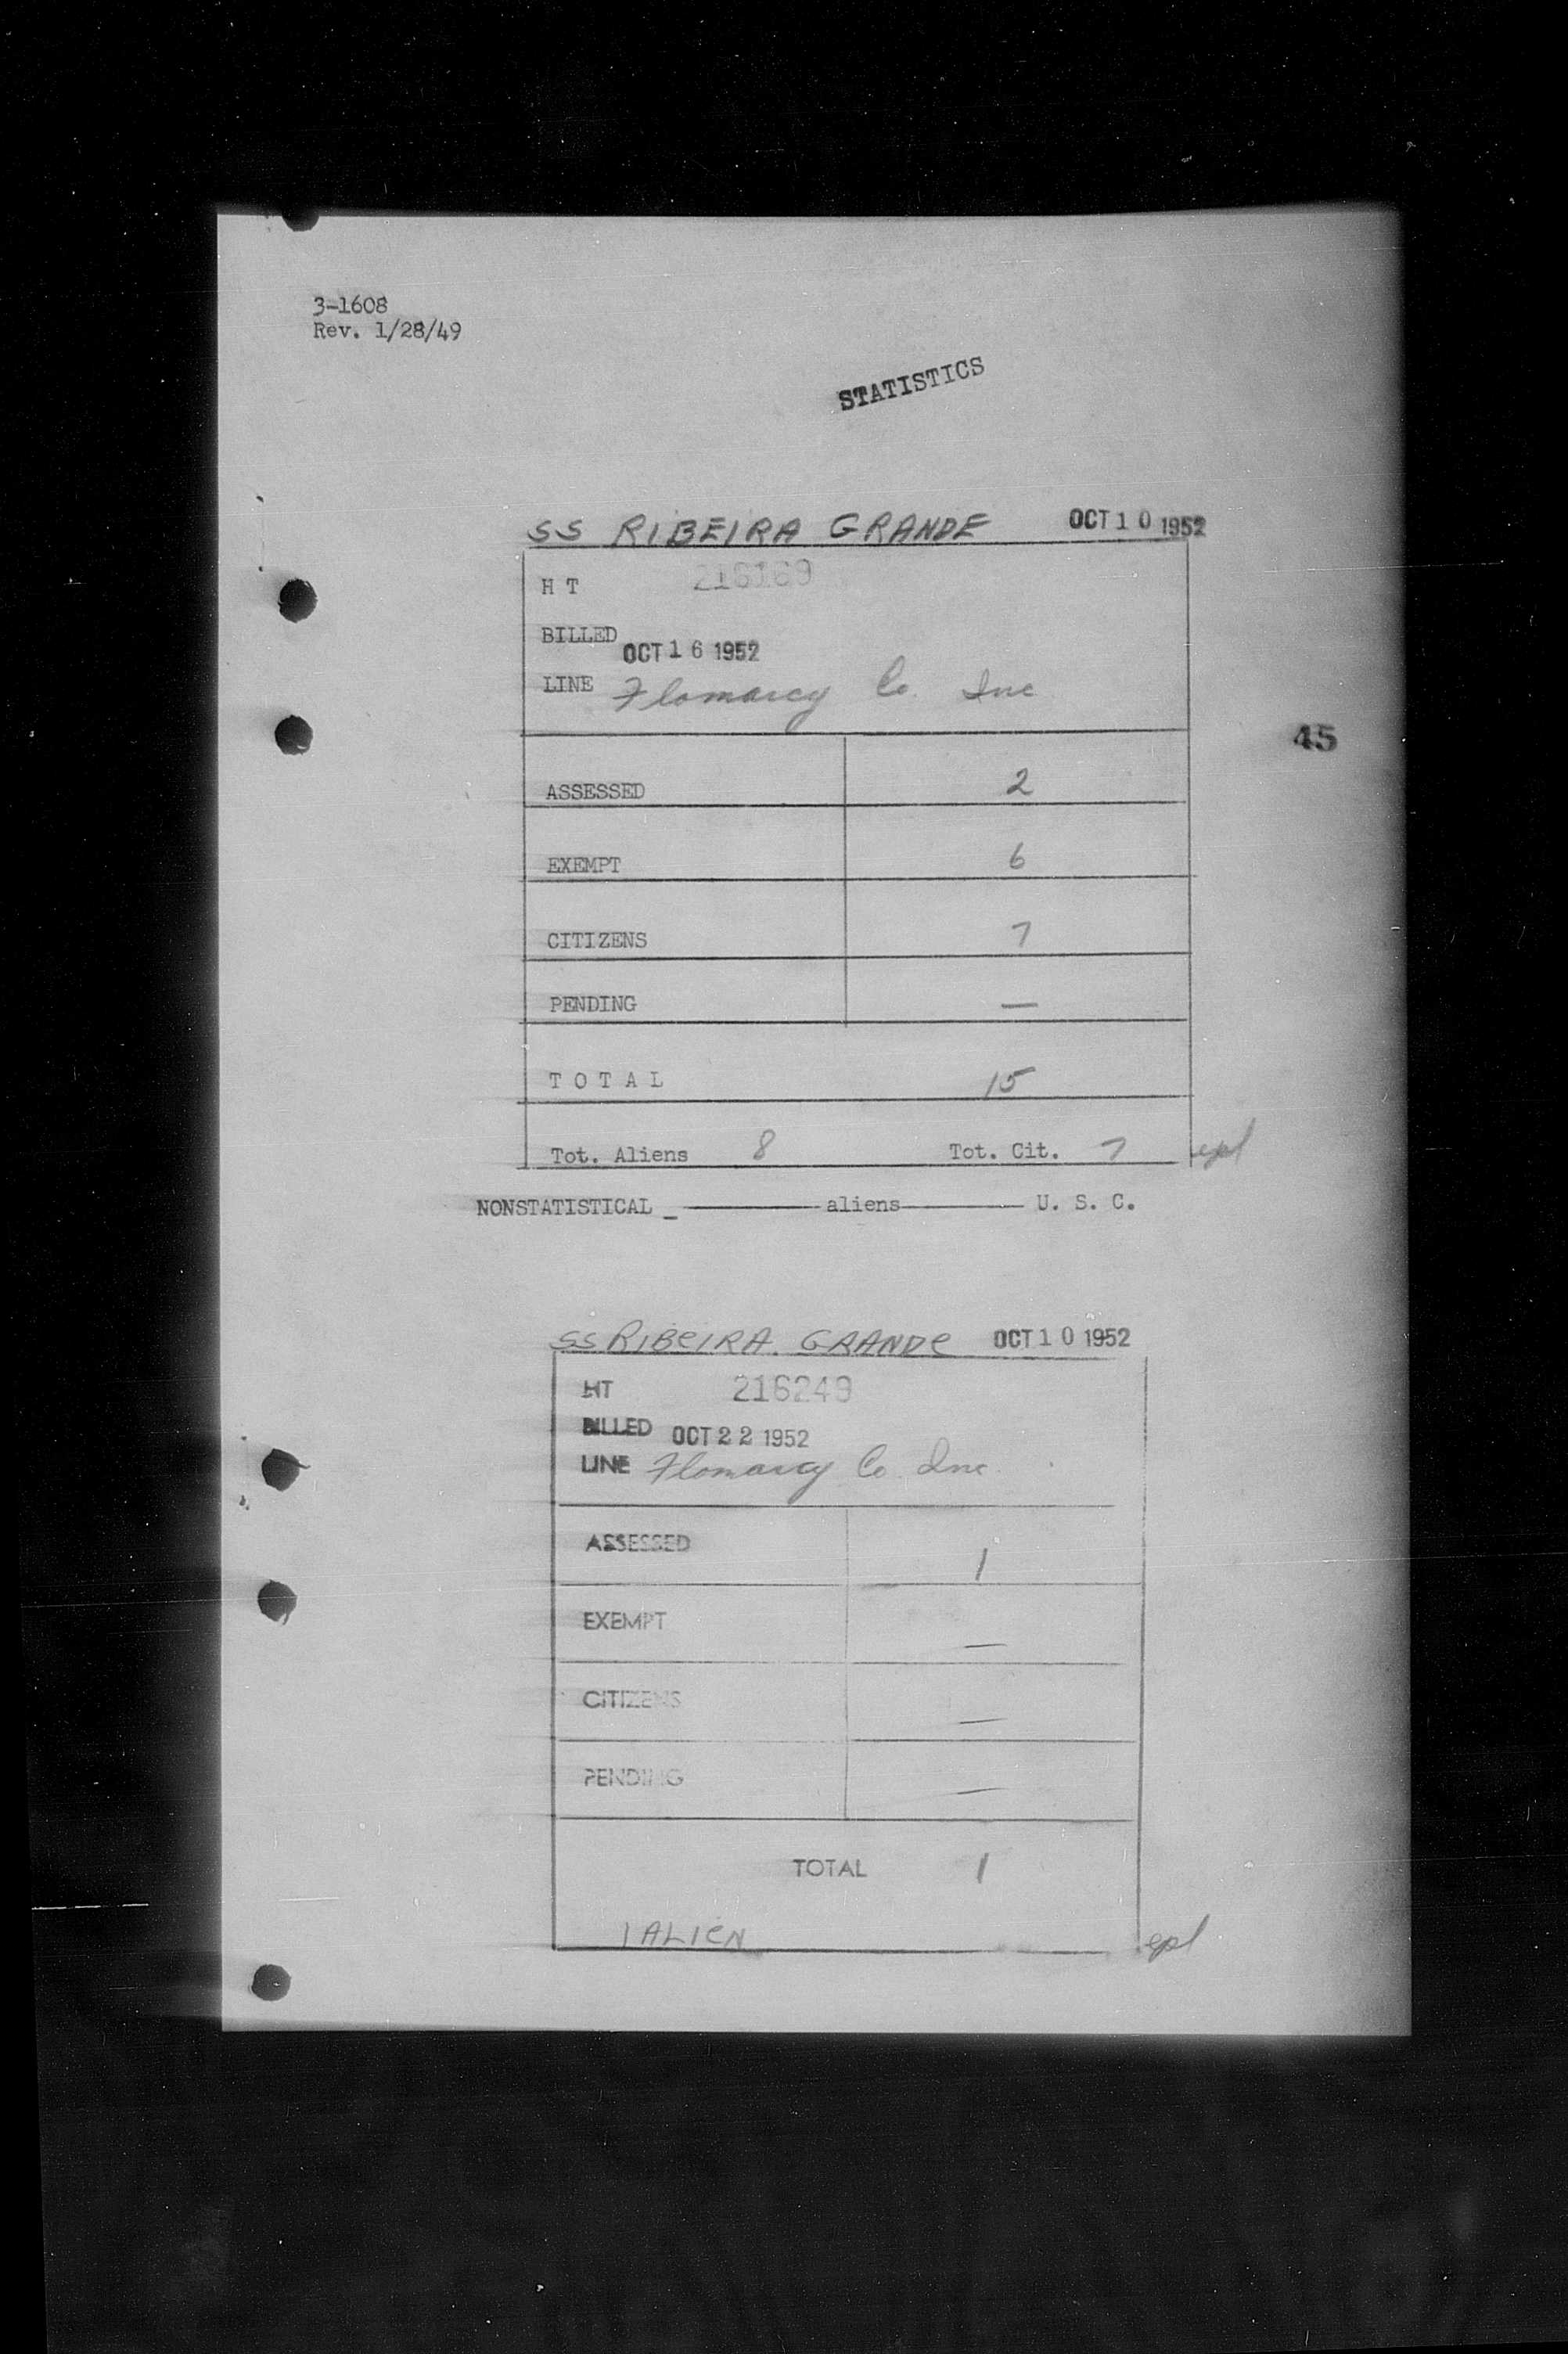 3-1608
Rev. 1/28/49
STATISTICS
SS RIBEIRA GRANDE OCT 10 1952
H T 216169
BILLED OCT 16 1952
LINE Flomarcy Co. Inc
45
ASSESSED 2
EXEMPT 6
CITIZENS 7
PENDING —
T O T A L 15
Tot. Aliens 8 Tot. Cit. 7 epl
NONSTATISTICAL _ ——— aliens ——— U. S. C.
SS RIBEIRA. GRANDE OCT 10 1952
HT 216249
BILLED OCT 22 1952
LINE Flomarcy Co. Inc.
ASSESSED 1
EXEMPT —
CITIZENS —
PENDING —
TOTAL 1
1 ALIEN epl